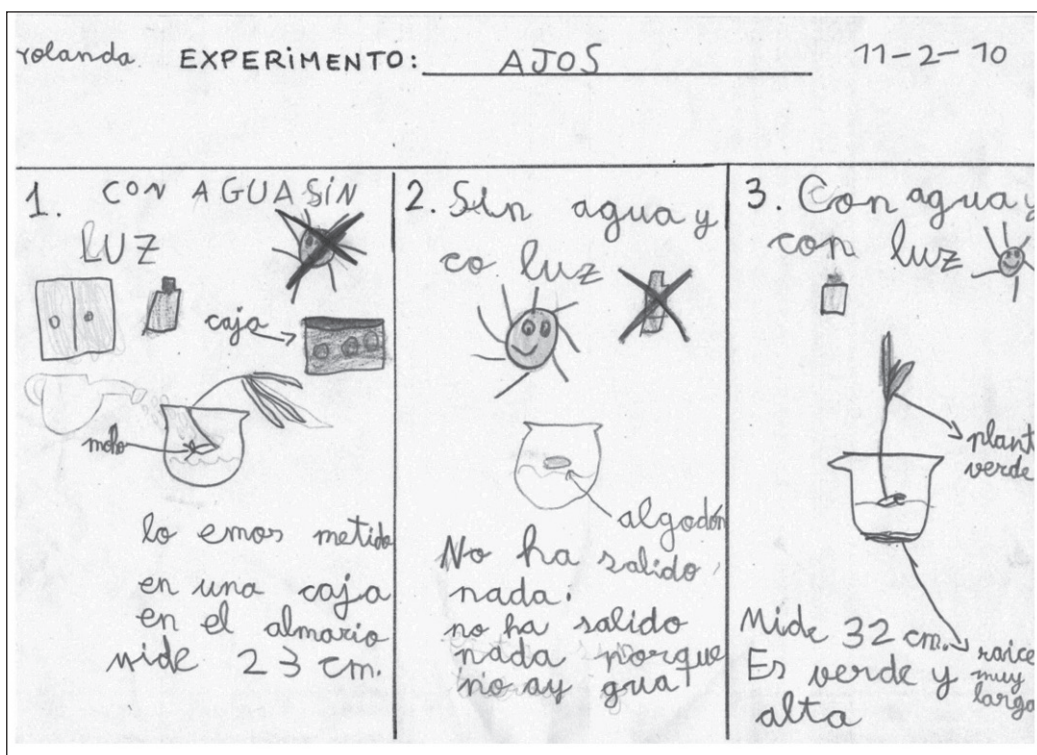 yolanda. EXPERIMENTO: AJOS 11-2-10
1. CON AGUA SIN
LUZ
caja
moho
lo emos metido
en una caja
en el almario
mide 23 cm.
2. Sin agua y
co luz
algodón
No ha salido
nada.
no ha salido
nada porque
no ay grua
3. Con agua y
con luz
plant
verde
Mide 32 cm.
Es verde y
alta
raice
muy
largo